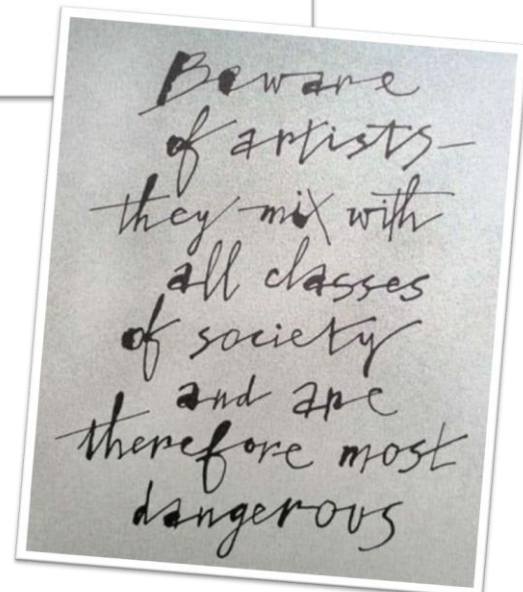 Beware
of artists—
they mix with
all classes
of society
and are
therefore most
dangerous